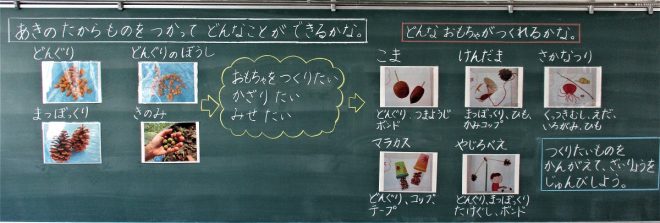 あきのたからものをつかって どんなことが できるかな。
どんぐり
どんぐりのぼうし
まつぼっくり
きのみ
おもちゃをつくりたい
かざりたい
みせたい
どんな おもちゃがつくれるかな。
こま
どんぐり、つまようじ
ボンド
けんだま
まつぼっくり、ひも、
かみコップ
さかなつり
くっつきむし、えだ、
いろがみ、ひも
マラカス
どんぐり、コップ、
テープ
やじろべえ
どんぐり、まつぼっくり
たけぐし、ボンド
つくりたいものを
かんがえて、ざいりょうを
じゅんびしよう。